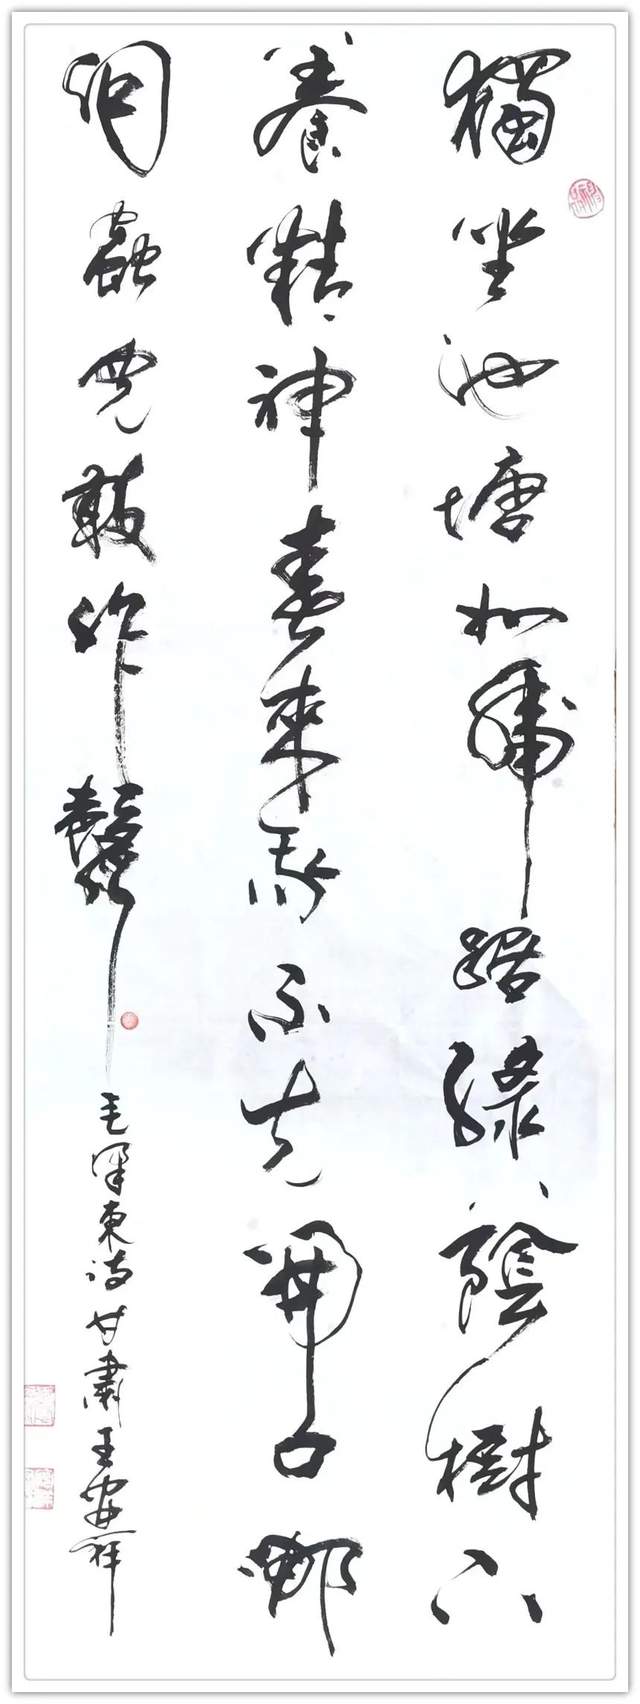 獨坐池塘如虎踞綠蔭樹下
養精神春來我不先開口哪
個蟲兒敢作聲
毛澤東詩甘肅王安祥